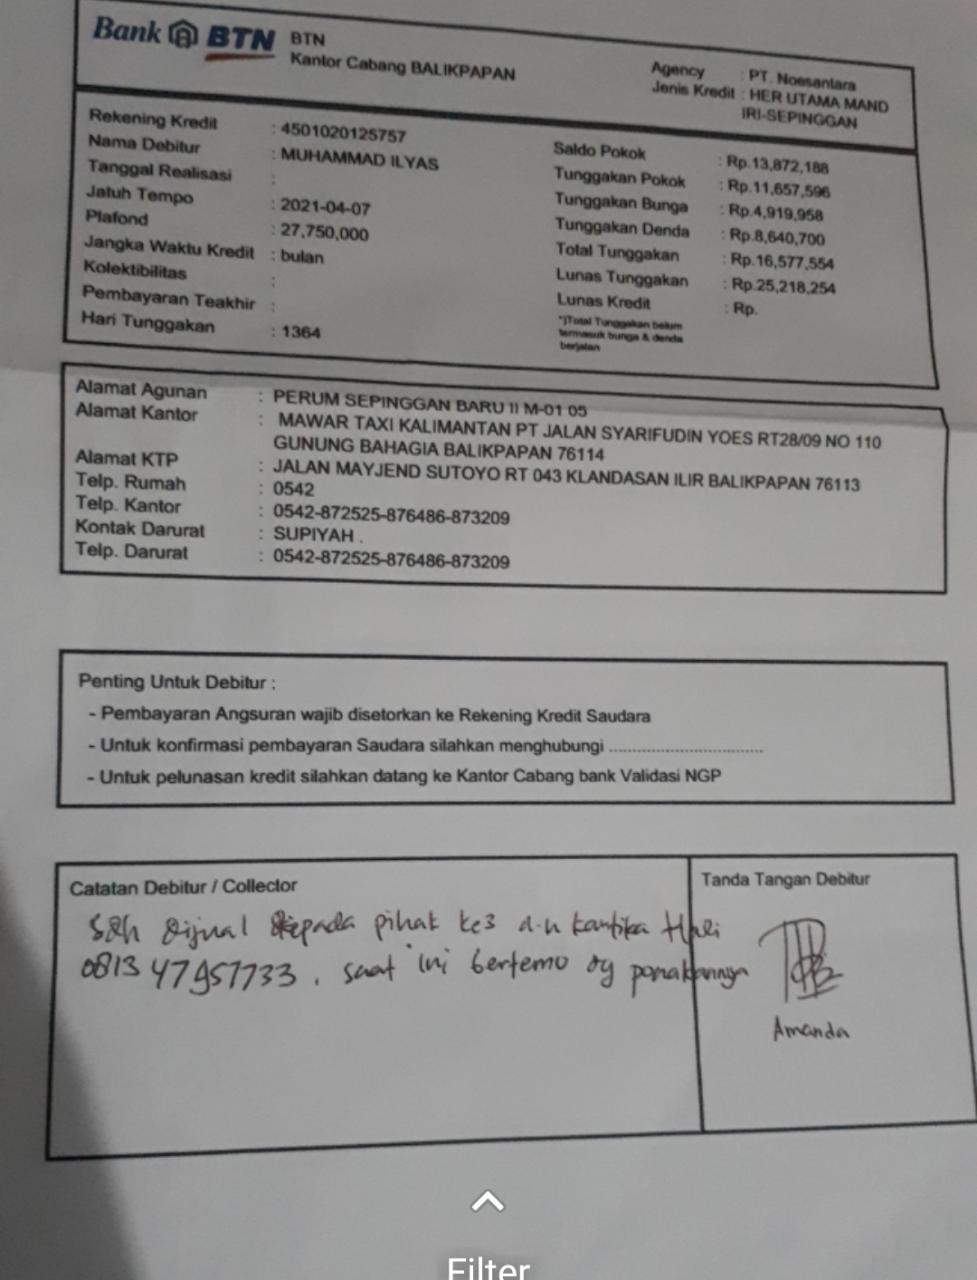 Bank BTN
BTN
Kantor Cabang BALIKPAPAN
Agency : PT. Noesantara
Jenis Kredit : HER UTAMA MAND
IRI-SEPINGGAN
Rekening Kredit : 4501020125757
Nama Debitur : MUHAMMAD ILYAS
Tanggal Realisasi :
Jatuh Tempo : 2021-04-07
Plafond : 27,750,000
Jangka Waktu Kredit : bulan
Kolektibilitas :
Pembayaran Teakhir :
Hari Tunggakan : 1364
Saldo Pokok : Rp.13,872,188
Tunggakan Pokok : Rp.11,657,596
Tunggakan Bunga : Rp.4,919,958
Tunggakan Denda : Rp.8,640,700
Total Tunggakan : Rp.16,577,554
Lunas Tunggakan : Rp.25,218,254
Lunas Kredit : Rp.
*)Total Tunggakan belum
termasuk bunga & denda
berjalan
Alamat Agunan : PERUM SEPINGGAN BARU II M-01 05
Alamat Kantor : MAWAR TAXI KALIMANTAN PT JALAN SYARIFUDIN YOES RT28/09 NO 110
GUNUNG BAHAGIA BALIKPAPAN 76114
Alamat KTP : JALAN MAYJEND SUTOYO RT 043 KLANDASAN ILIR BALIKPAPAN 76113
Telp. Rumah : 0542
Telp. Kantor : 0542-872525-876486-873209
Kontak Darurat : SUPIYAH .
Telp. Darurat : 0542-872525-876486-873209
Penting Untuk Debitur :
- Pembayaran Angsuran wajib disetorkan ke Rekening Kredit Saudara
- Untuk konfirmasi pembayaran Saudara silahkan menghubungi .................................
- Untuk pelunasan kredit silahkan datang ke Kantor Cabang bank Validasi NGP
Catatan Debitur / Collector
Sdh dijual kepada pihak ke3 a.n kantika
081347957733. saat ini bertemu dg ponakannya
Tanda Tangan Debitur
Amanda
Filter